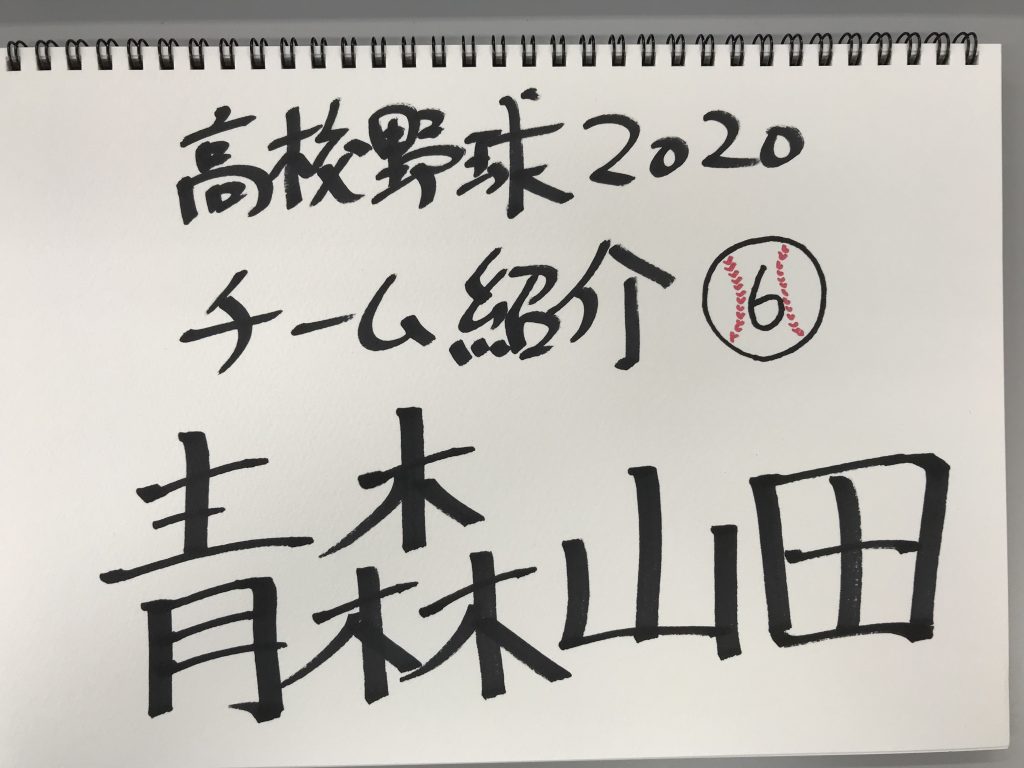 高校野球2020
チーム紹介6
青森山田